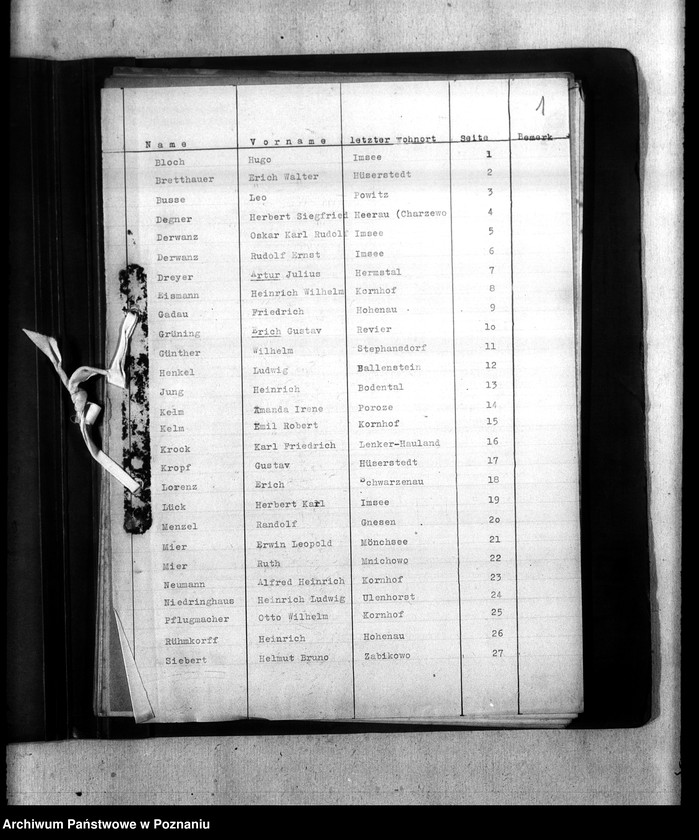 1
Name Vorname letzter wohnort Seite Bemerk
Bloch Hugo Imsee 1
Bretthauer Erich Walter Hüserstedt 2
Busse Leo Powitz 3
Degner Herbert Siegfried Heerau (Charzewo 4
Derwanz Oskar Karl Rudolf Imsee 5
Derwanz Rudolf Ernst Imsee 6
Dreyer Artur Julius Hermstal 7
Eismann Heinrich Wilhelm Kornhof 8
Gadau Friedrich Hohenau 9
Grüning Erich Gustav Revier 1o
Günther Wilhelm Stephansdorf 11
Henkel Ludwig Ballenstein 12
Jung Heinrich Bodental 13
Kelm Amanda Irene Poroze 14
Kelm Emil Robert Kornhof 15
Krock Karl Friedrich Lenker-Hauland 16
Kropf Gustav Hüserstedt 17
Lorenz Erich Schwarzenau 18
Lück Herbert Karl Imsee 19
Menzel Randolf Gnesen 2o
Mier Erwin Leopold Mönchsee 21
Mier Ruth Mnichowo 22
Neumann Alfred Heinrich Kornhof 23
Niedringhaus Heinrich Ludwig Ulenhorst 24
Pflugmacher Otto Wilhelm Kornhof 25
Rühmkorff Heinrich Hohenau 26
Siebert Helmut Bruno Zabikowo 27
Archiwum Państwowe w Poznaniu